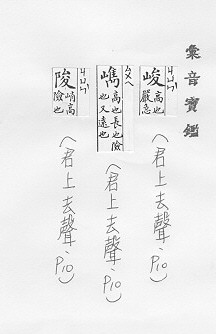 彙音寶鑑
ㄐㄩㄣˋ
峻高也嚴急
(君上去聲、P10)
ㄙㄨㄟ
嶲高也長也險也又遠也
(君上去聲、P10)
ㄐㄩㄣˋ
陖峭高險也
(君上去聲、P10)